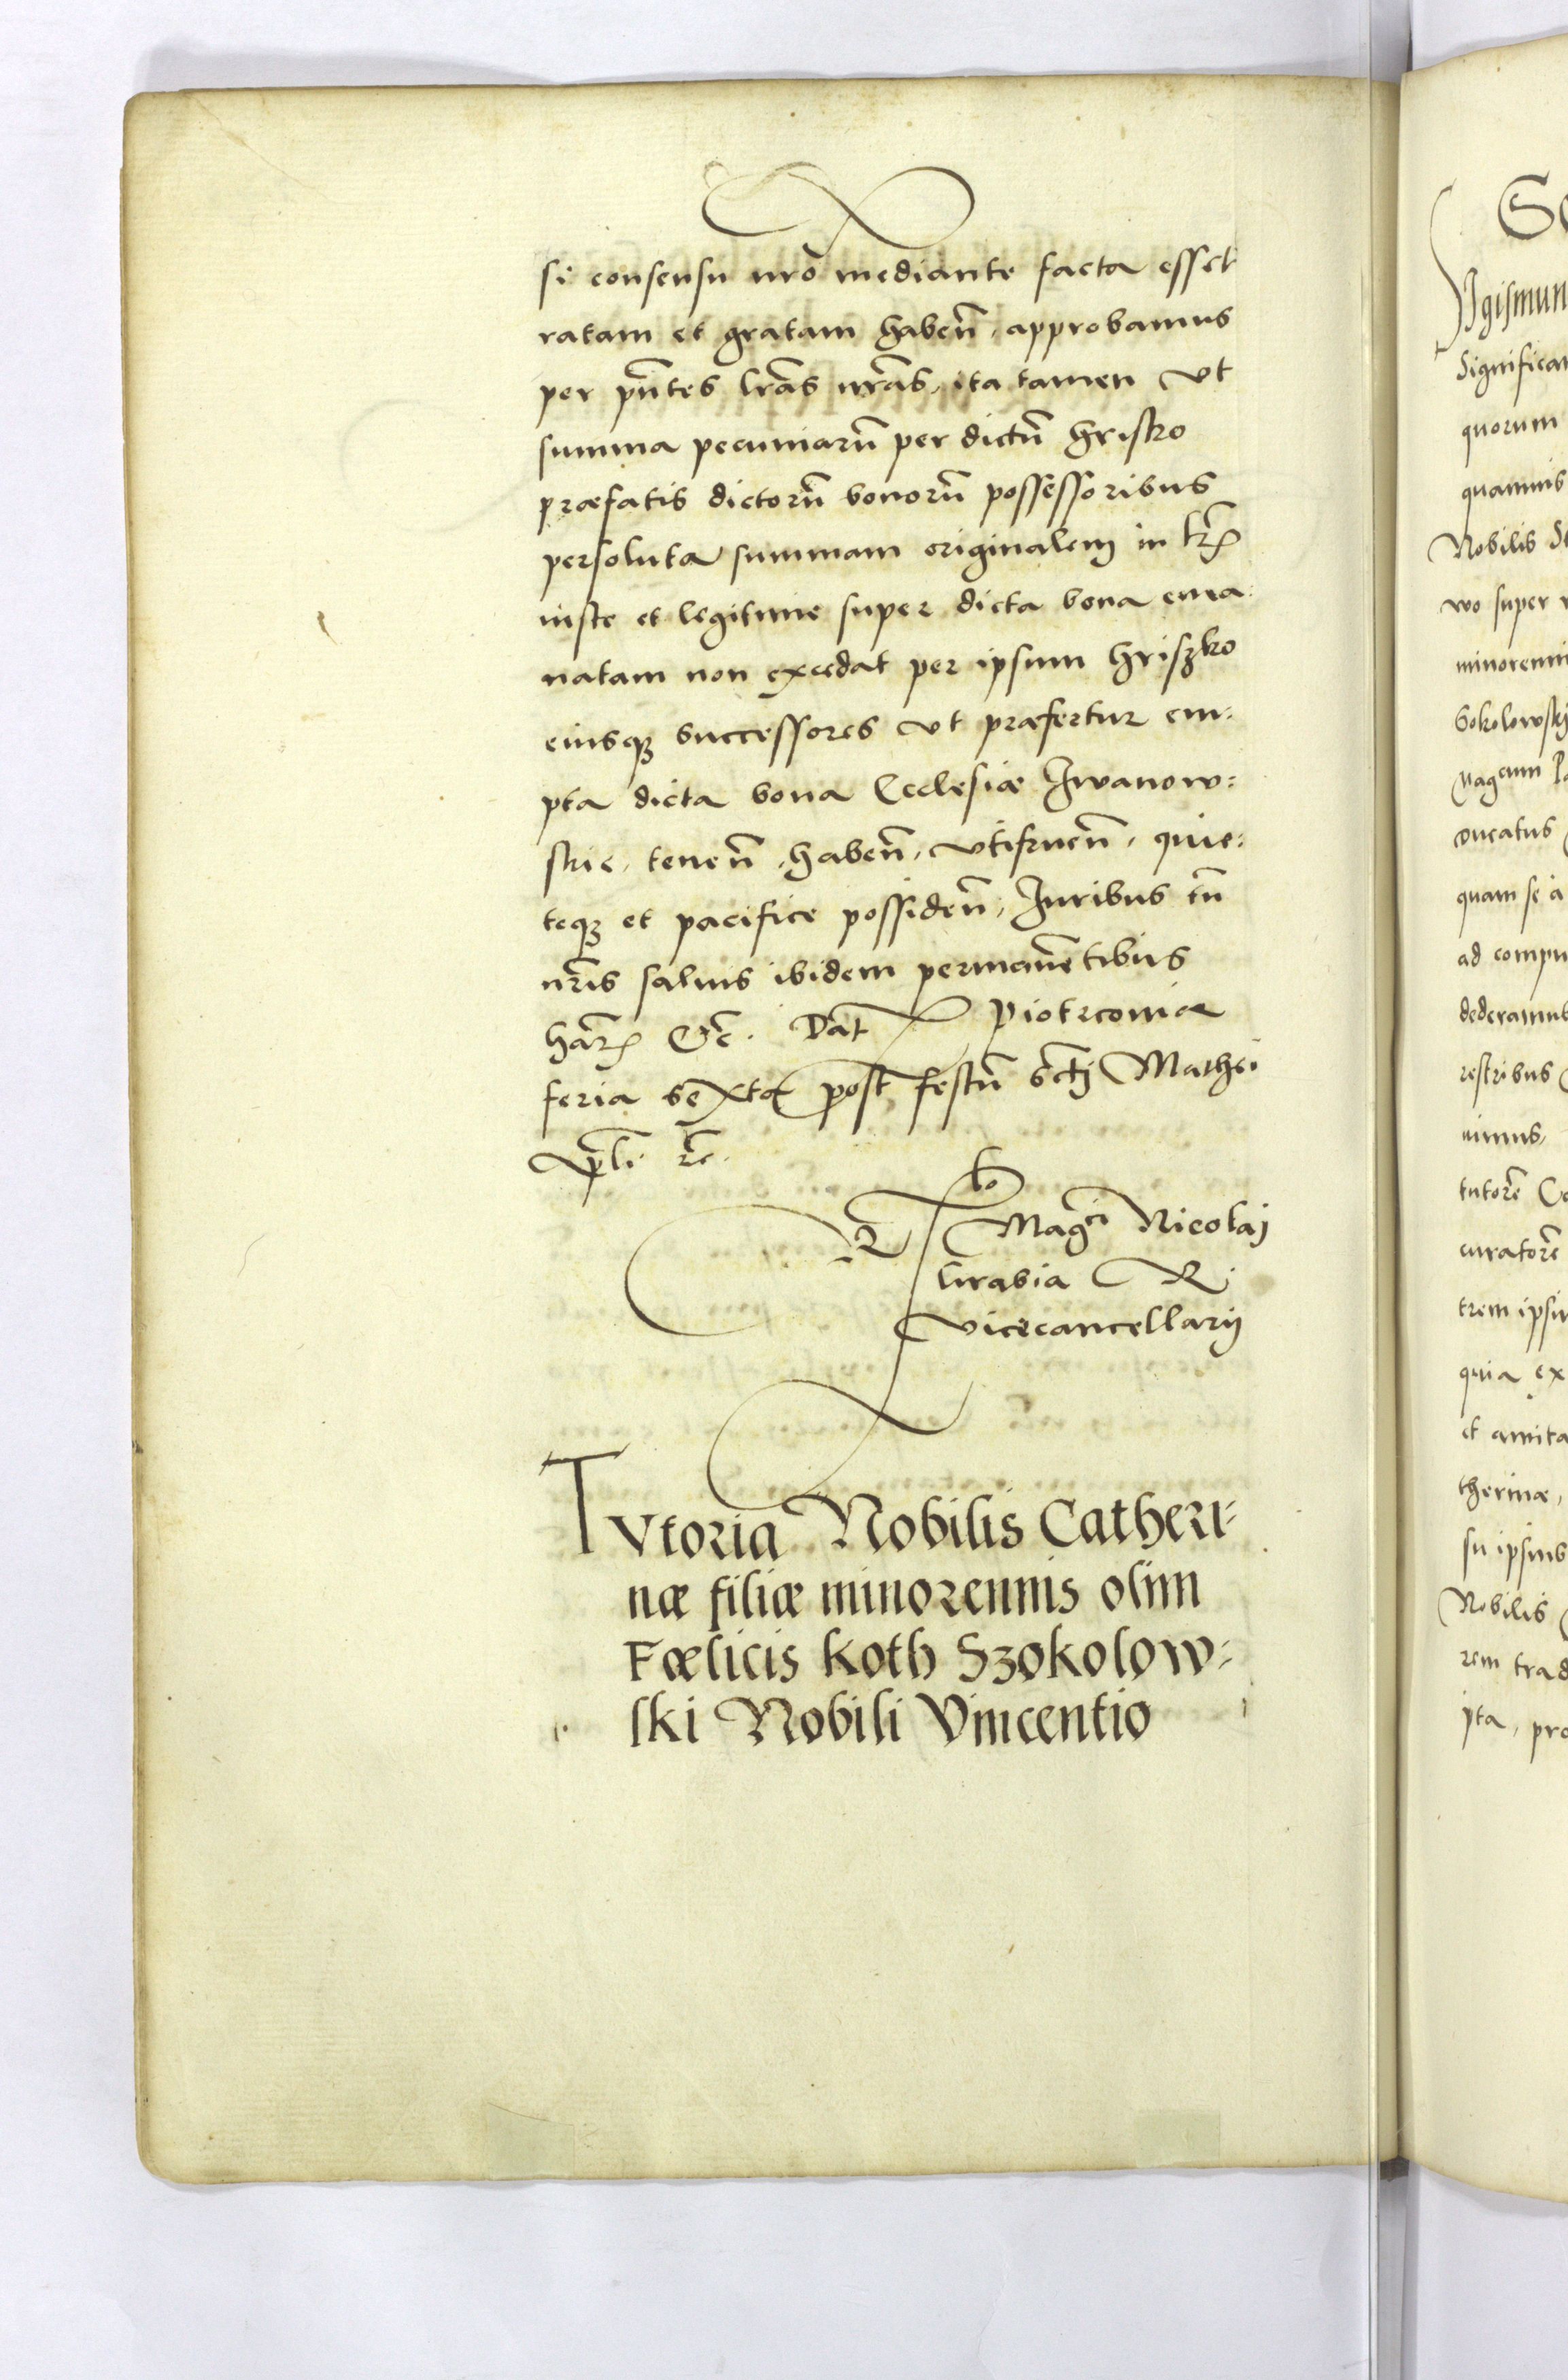 si consensu nr̃o mediante facta esset
ratam et gratam haben̄, approbamus
per pn̄tes lr̃as nr̃as, ita tamen vt
summa pecuniarū per dictū Hrisko
præfatis dictorū bonorū possessoribus
persoluta summam originalem in lr̃
iuste et legitime super dicta bona ema
natam non excedat per ipsum Hriszko
eiusq; successores vt præfertur em:
pta dicta bona Ecclesiæ Iwanow:
skie, tenen̄, haben̄, vtifruen̄, quie:
teq; et pacifice possiden̄, Iuribus tn̄
nr̃is saluis ibidem permanētibus
har̃ &c̃. Dat̄ Piotrcouiæ
feria sexta post festū sctj Mathei
apl̄i &c̄.
R̄o
Magci Nicolaj
Grabia R.
Vicecancellarij
Tvtoria Nobilis Catheri:
næ filiæ minorennis olim
Fœlicis Koth Szokolow:
ski Nobili Vincentio
Significa
quorum
quamuis
Nobilis
wo super
minorenni
Sokolowskj
quam se a
ad compu
dederamus
restribus
tutorē
curatorē
trem ipsiu
quia ex
et amita
therinæ,
su ipsius
Nobilis
rem trad
pta, pro